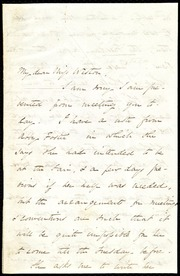 My dear Miss Weston
I am sorry I am pre-
vented from meeting you to
day. I have a note from
Mrs. Foster in which she
says she had intended to be
at the Fair, a few days pre-
vious if her help was needed,
and the arrangement for meetings
& conventions are such that it
will be quite impossible for her
to come till the Tuesday before.
She asks me to write her